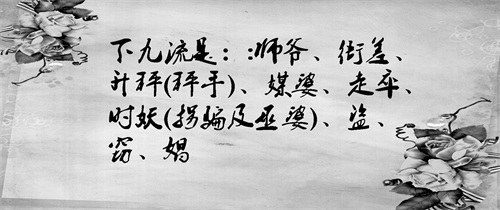 下九流是：:师爷、衙差、
升秤(秤手)、媒婆、走卒、
时妖(拐骗及巫婆)、盗、
窃、娼